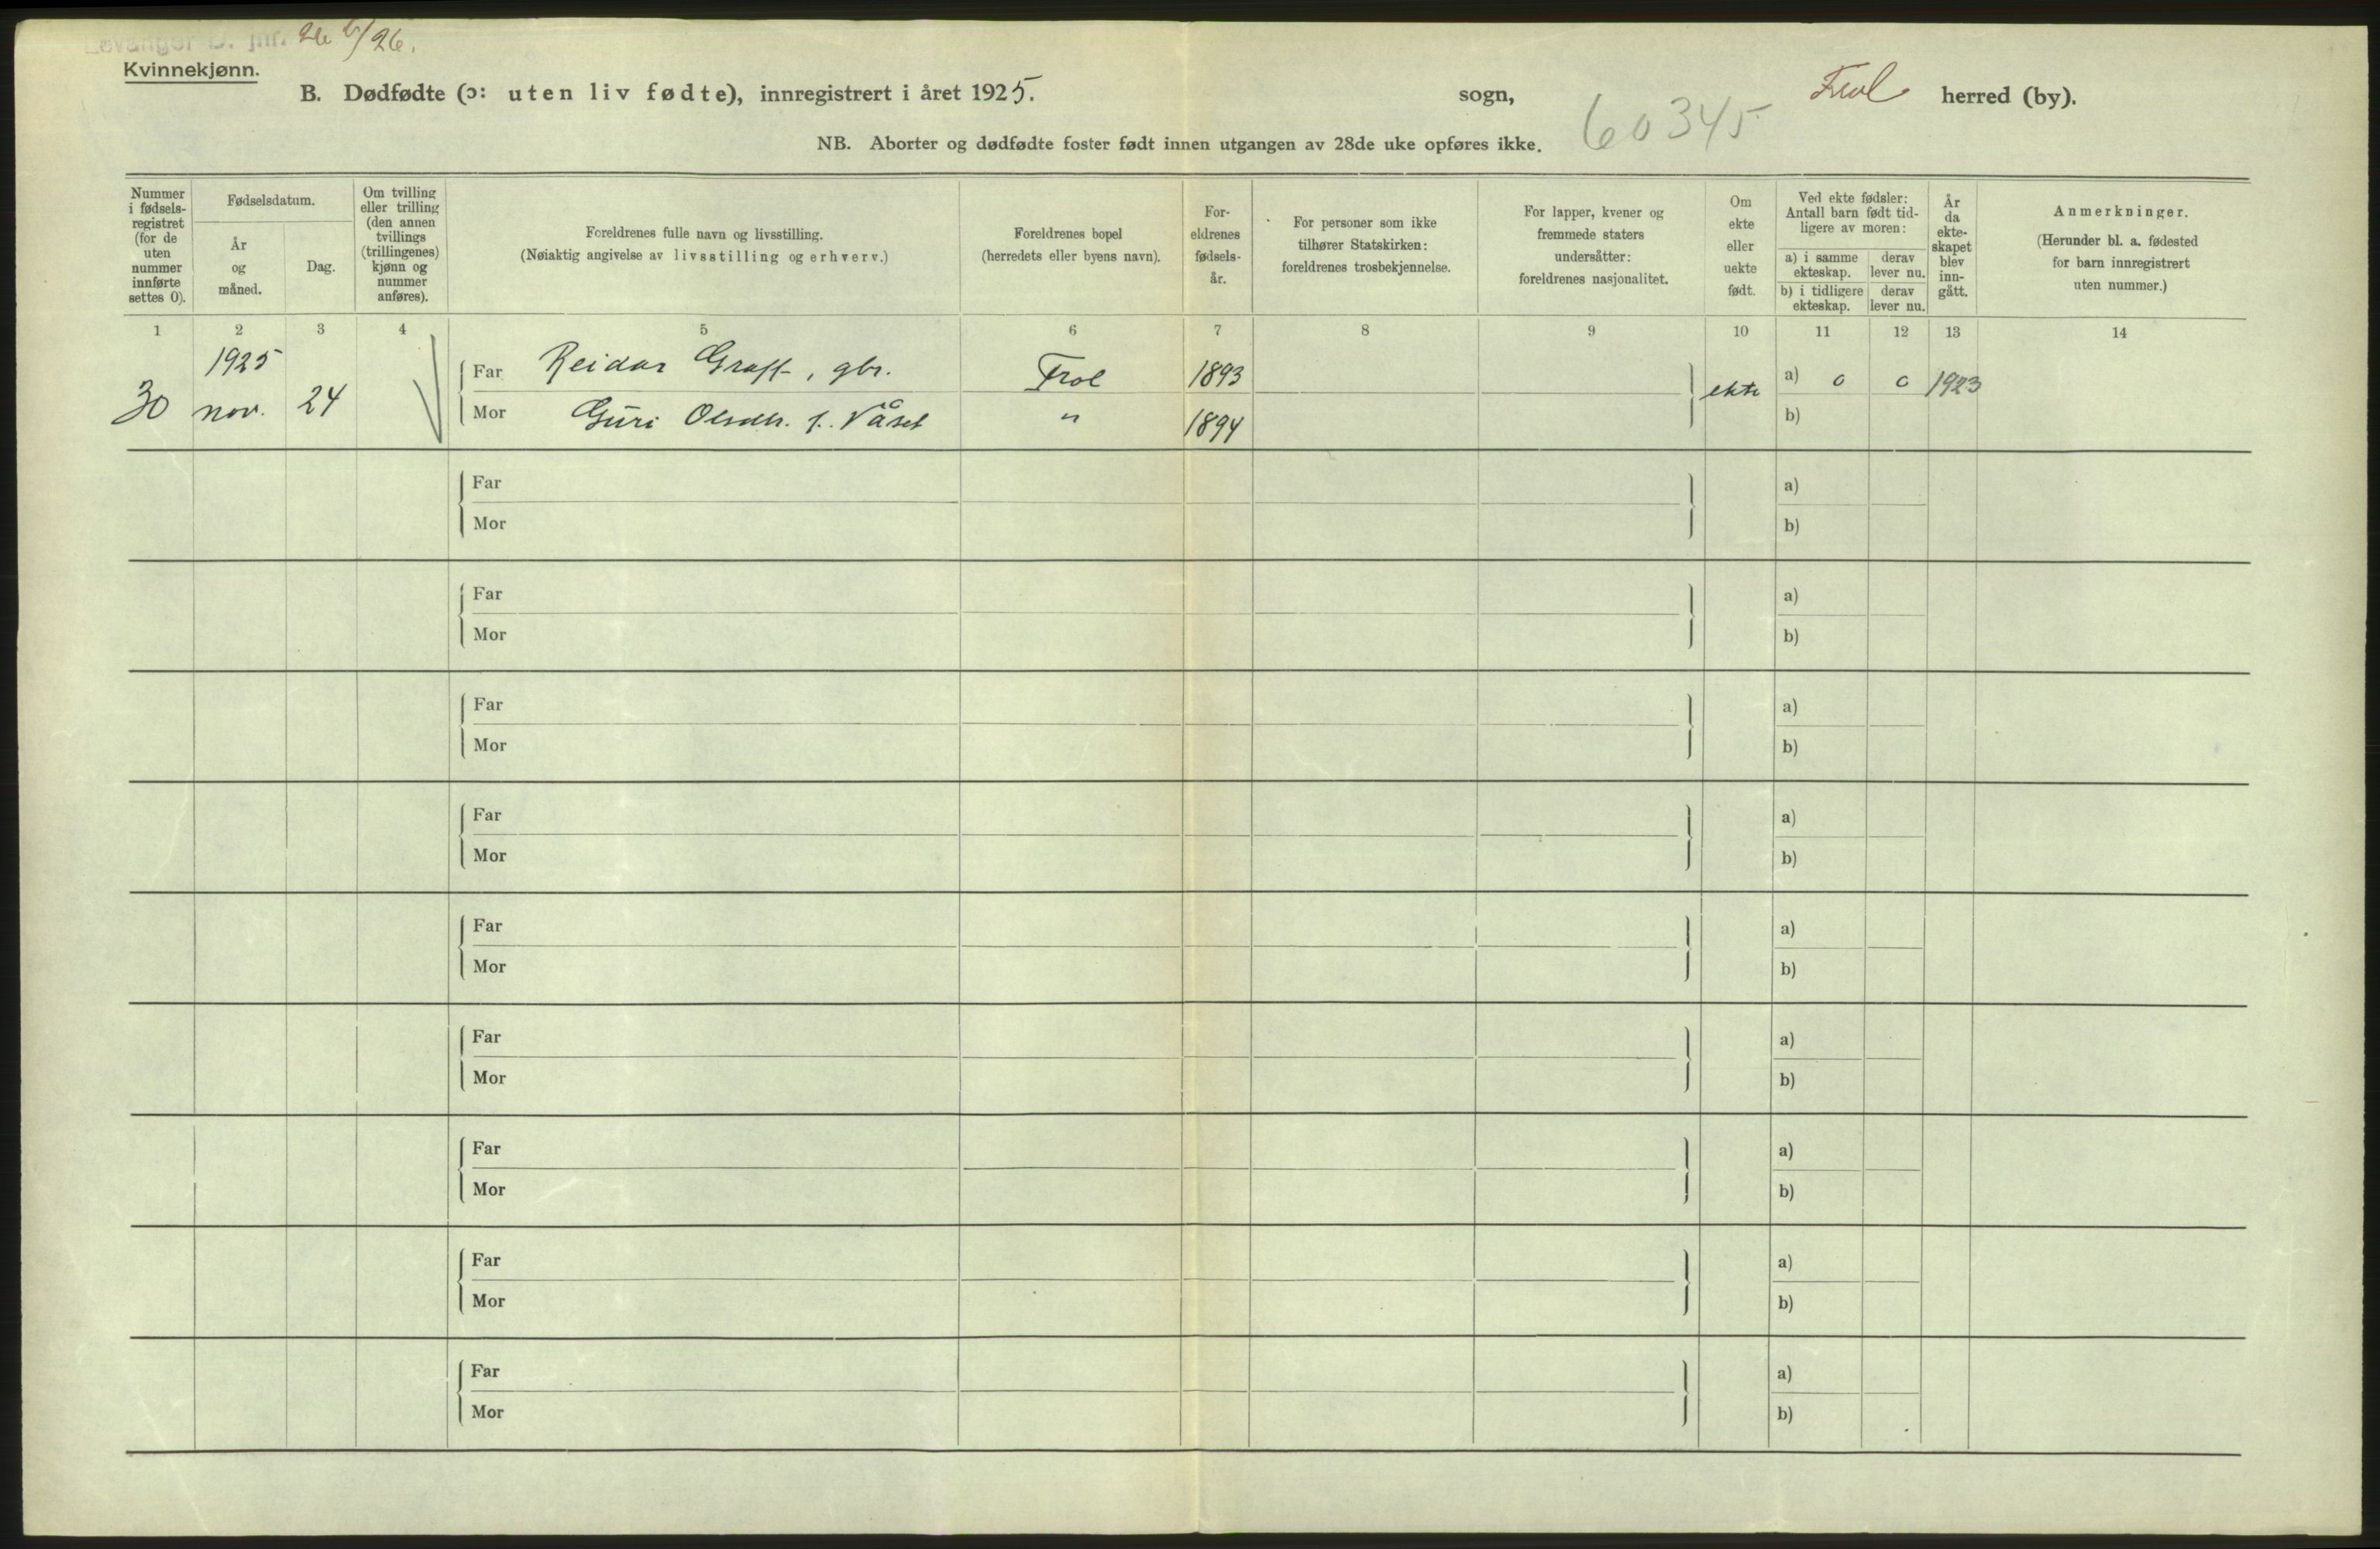 Levanger D. jnr. 26 b/26.
Kvinnekjønn.
B. Dødfødte (ɔ: uten liv fødte), innregistrert i året 1925. sogn, Frol herred (by).
60345
NB. Aborter og dødfødte foster født innen utgangen av 28de uke opføres ikke.
Nummer i fødsels-registret (for de uten nummer innførte settes 0).
Fødselsdatum.
År og måned.
Dag.
Om tvilling eller trilling (den annen tvillings (trillingenes) kjønn og nummer anføres).
Foreldrenes fulle navn og livsstilling.
(Nøiaktig angivelse av livsstilling og erhverv.)
Foreldrenes bopel
(herredets eller byens navn).
For-eldrenes fødsels-år.
For personer som ikke tilhører Statskirken: foreldrenes trosbekjennelse.
For lapper, kvener og fremmede staters undersåtter: foreldrenes nasjonalitet.
Om ekte eller uekte født.
Ved ekte fødsler: Antall barn født tid-ligere av moren:
a) i samme ekteskap.
derav lever nu.
b) i tidligere ekteskap.
derav lever nu.
År da ekte-skapet blev inn-gått.
Anmerkninger.
(Herunder bl. a. fødested for barn innregistrert uten nummer.)
1 2 3 4 5 6 7 8 9 10 11 12 13 14
1925
Far Reidar Graff, gbr. Frol 1893 a) 0 0 1923
30 nov. 24 ekte
Mor Guri Olsdtr. f. Våset " 1894 b)
Far a)
Mor b)
Far a)
Mor b)
Far a)
Mor b)
Far a)
Mor b)
Far a)
Mor b)
Far a)
Mor b)
Far a)
Mor b)
Far a)
Mor b)
Far a)
Mor b)